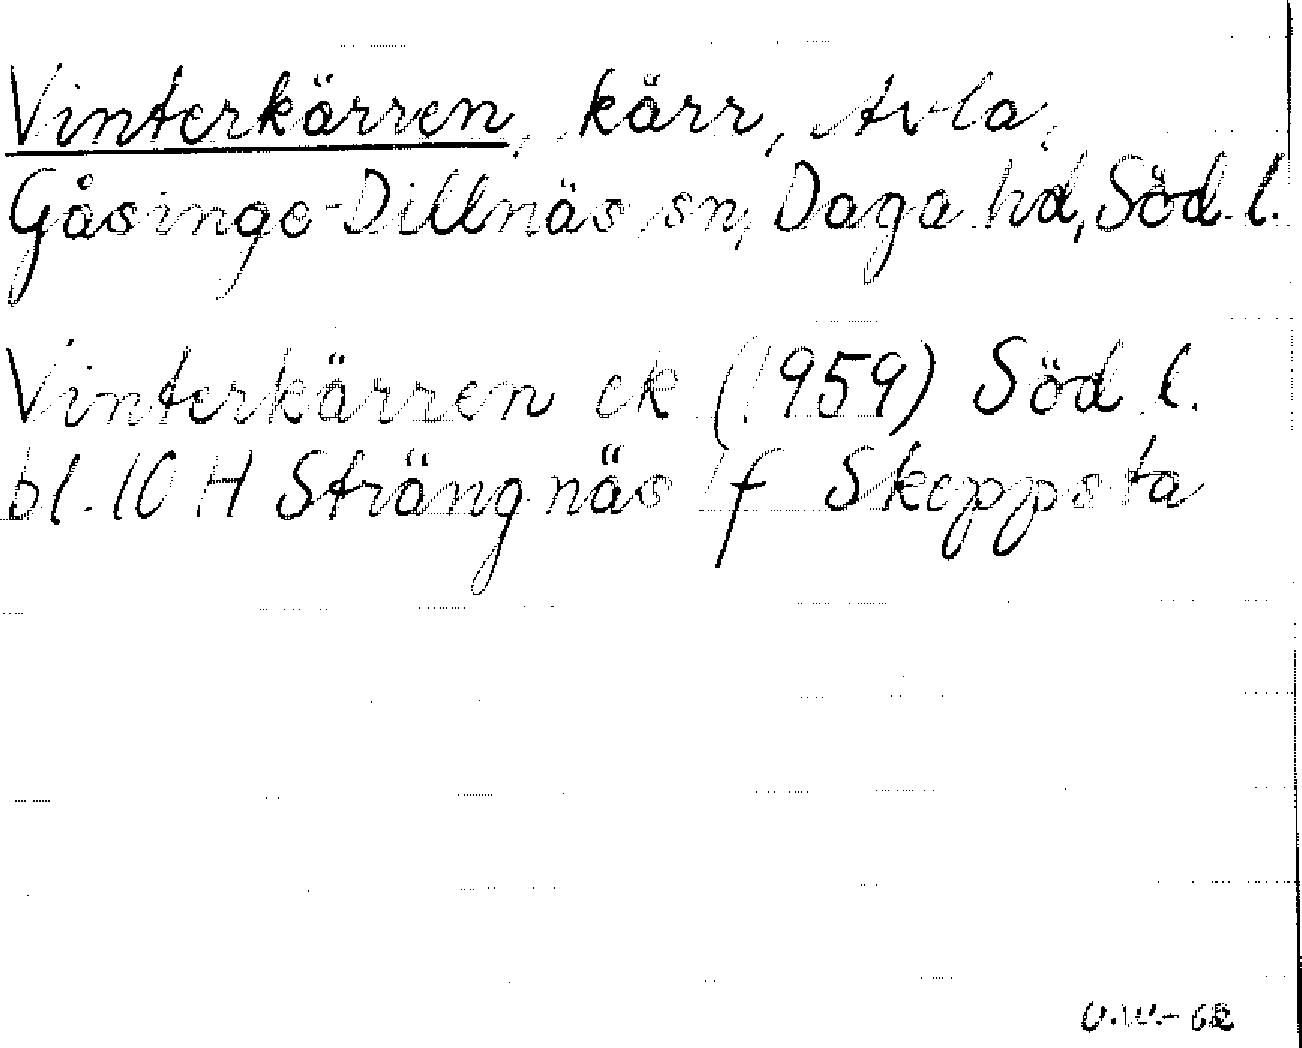 Vinterkärren, kärr, Avla,
Gåsinge-Dillnäs sn, Daga hd, Söd. l.
Vinterkärren ek (1959) Söd. l.
bl. 10 H Strängnäs 1 f Skeppsta